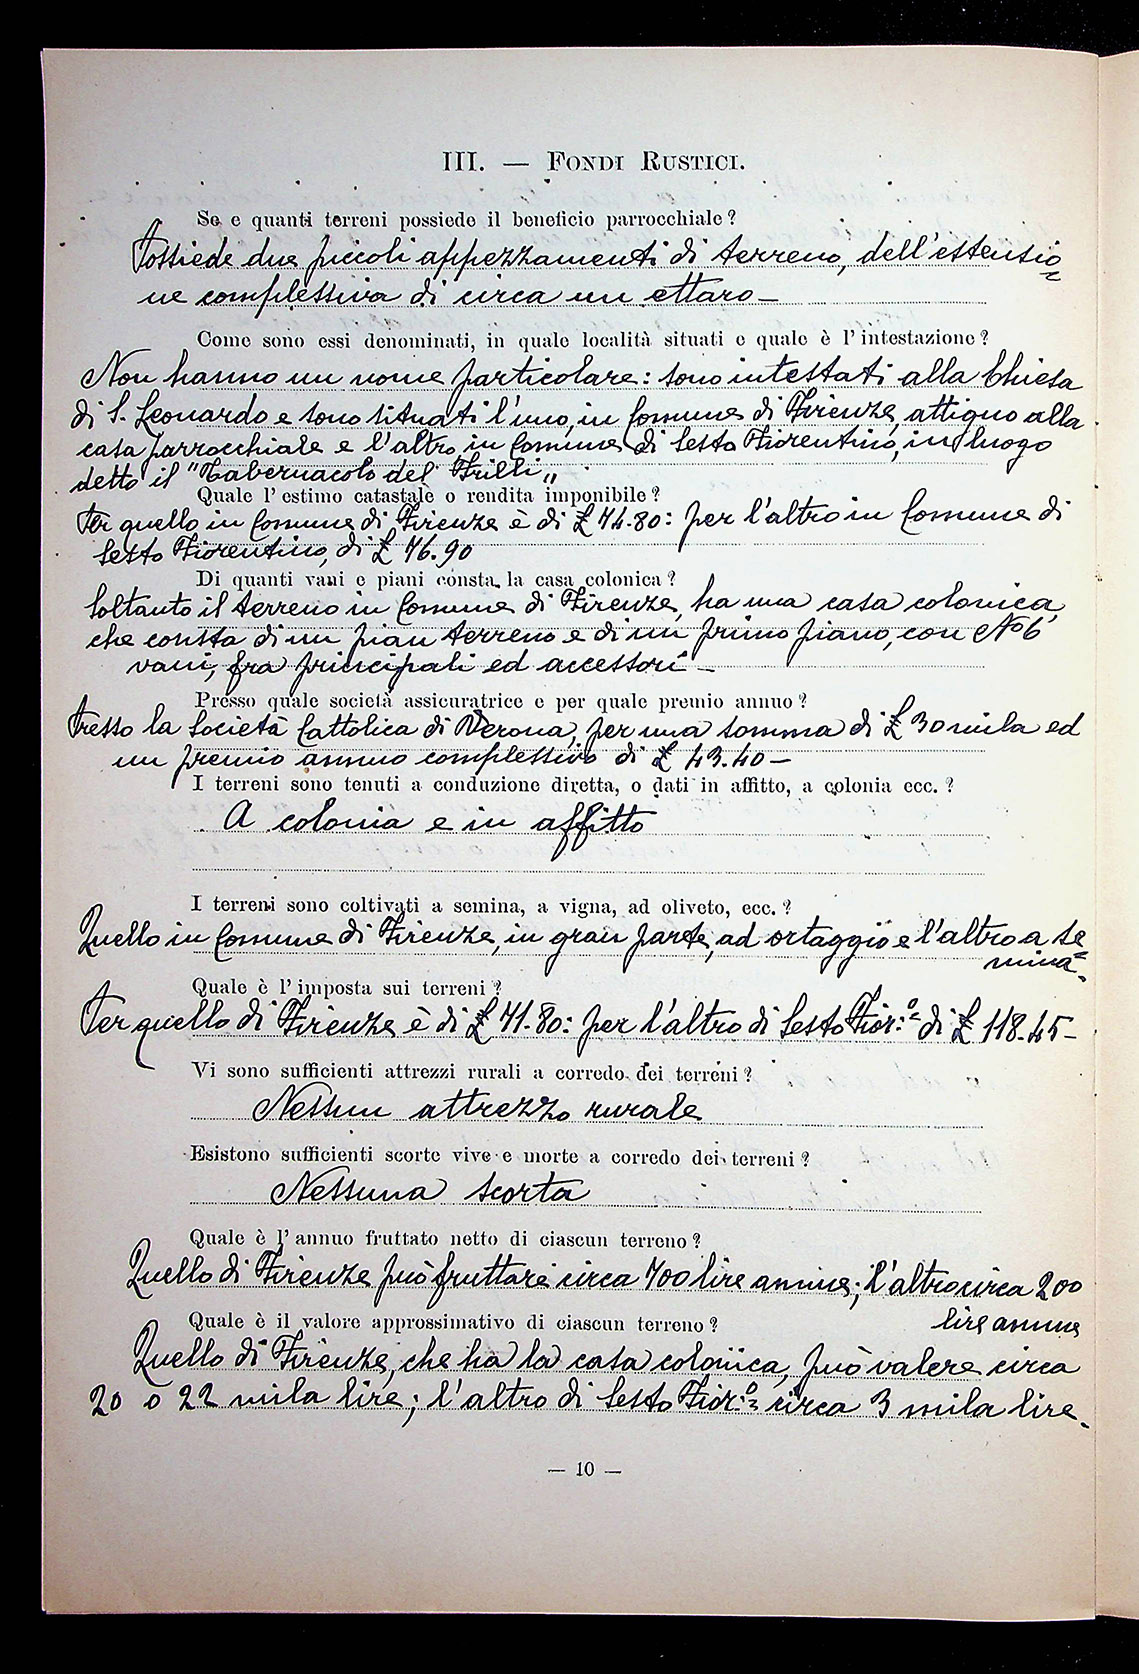 III. — FONDI RUSTICI.
Se e quanti terreni possiede il beneficio parrocchiale?
Possiede due piccoli appezzamenti di terreno, dell'estensio=
ne complessiva di circa un ettaro—
Come sono essi denominati, in quale località situati e quale è l'intestazione?
Non hanno un nome particolare: sono intestati alla Chiesa
di S. Leonardo e sono situati l'uno, in Comune di Firenze, attiguo alla
casa parrocchiale e l'altro, in Comune di Sesto Fiorentino, in luogo
detto il "Tabernacolo del Frilli„
Quale l'estimo catastale o rendita imponibile?
Per quello in Comune di Firenze è di £ 74.80: per l'altro in Comune di
Sesto Fiorentino, di £ 76.90
Di quanti vani e piani consta la casa colonica?
Soltanto il terreno in Comune di Firenze, ha una casa colonica,
che consta di un pian terreno e di un primo piano, con No 6
vani, fra principali ed accessori —
Presso quale società assicuratrice e per quale premio annuo?
Presso la Società Cattolica di Verona, per una somma di £ 30 mila ed
un premio annuo complessivo di £ 43.40 —
I terreni sono tenuti a conduzione diretta, o dati in affitto, a colonia ecc.?
A colonia e in affitto
I terreni sono coltivati a semina, a vigna, ad oliveto, ecc.?
Quello in Comune di Firenze, in gran parte, ad ortaggio e l'altro a se=
mina.
Quale è l'imposta sui terreni?
Per quello di Firenze è di £ 71.80: per l'altro di Sesto Fior:º di £ 118.45—
Vi sono sufficienti attrezzi rurali a corredo dei terreni?
Nessun attrezzo rurale
Esistono sufficienti scorte vive e morte a corredo dei terreni?
Nessuna scorta
Quale è l'annuo fruttato netto di ciascun terreno?
Quello di Firenze può fruttare circa 700 lire annue; l'altro circa 200
lire annue
Quale è il valore approssimativo di ciascun terreno?
Quello di Firenze, che ha la casa colonica, può valere circa
20 o 22 mila lire; l'altro di Sesto Fior:º circa 3 mila lire.
— 10 —